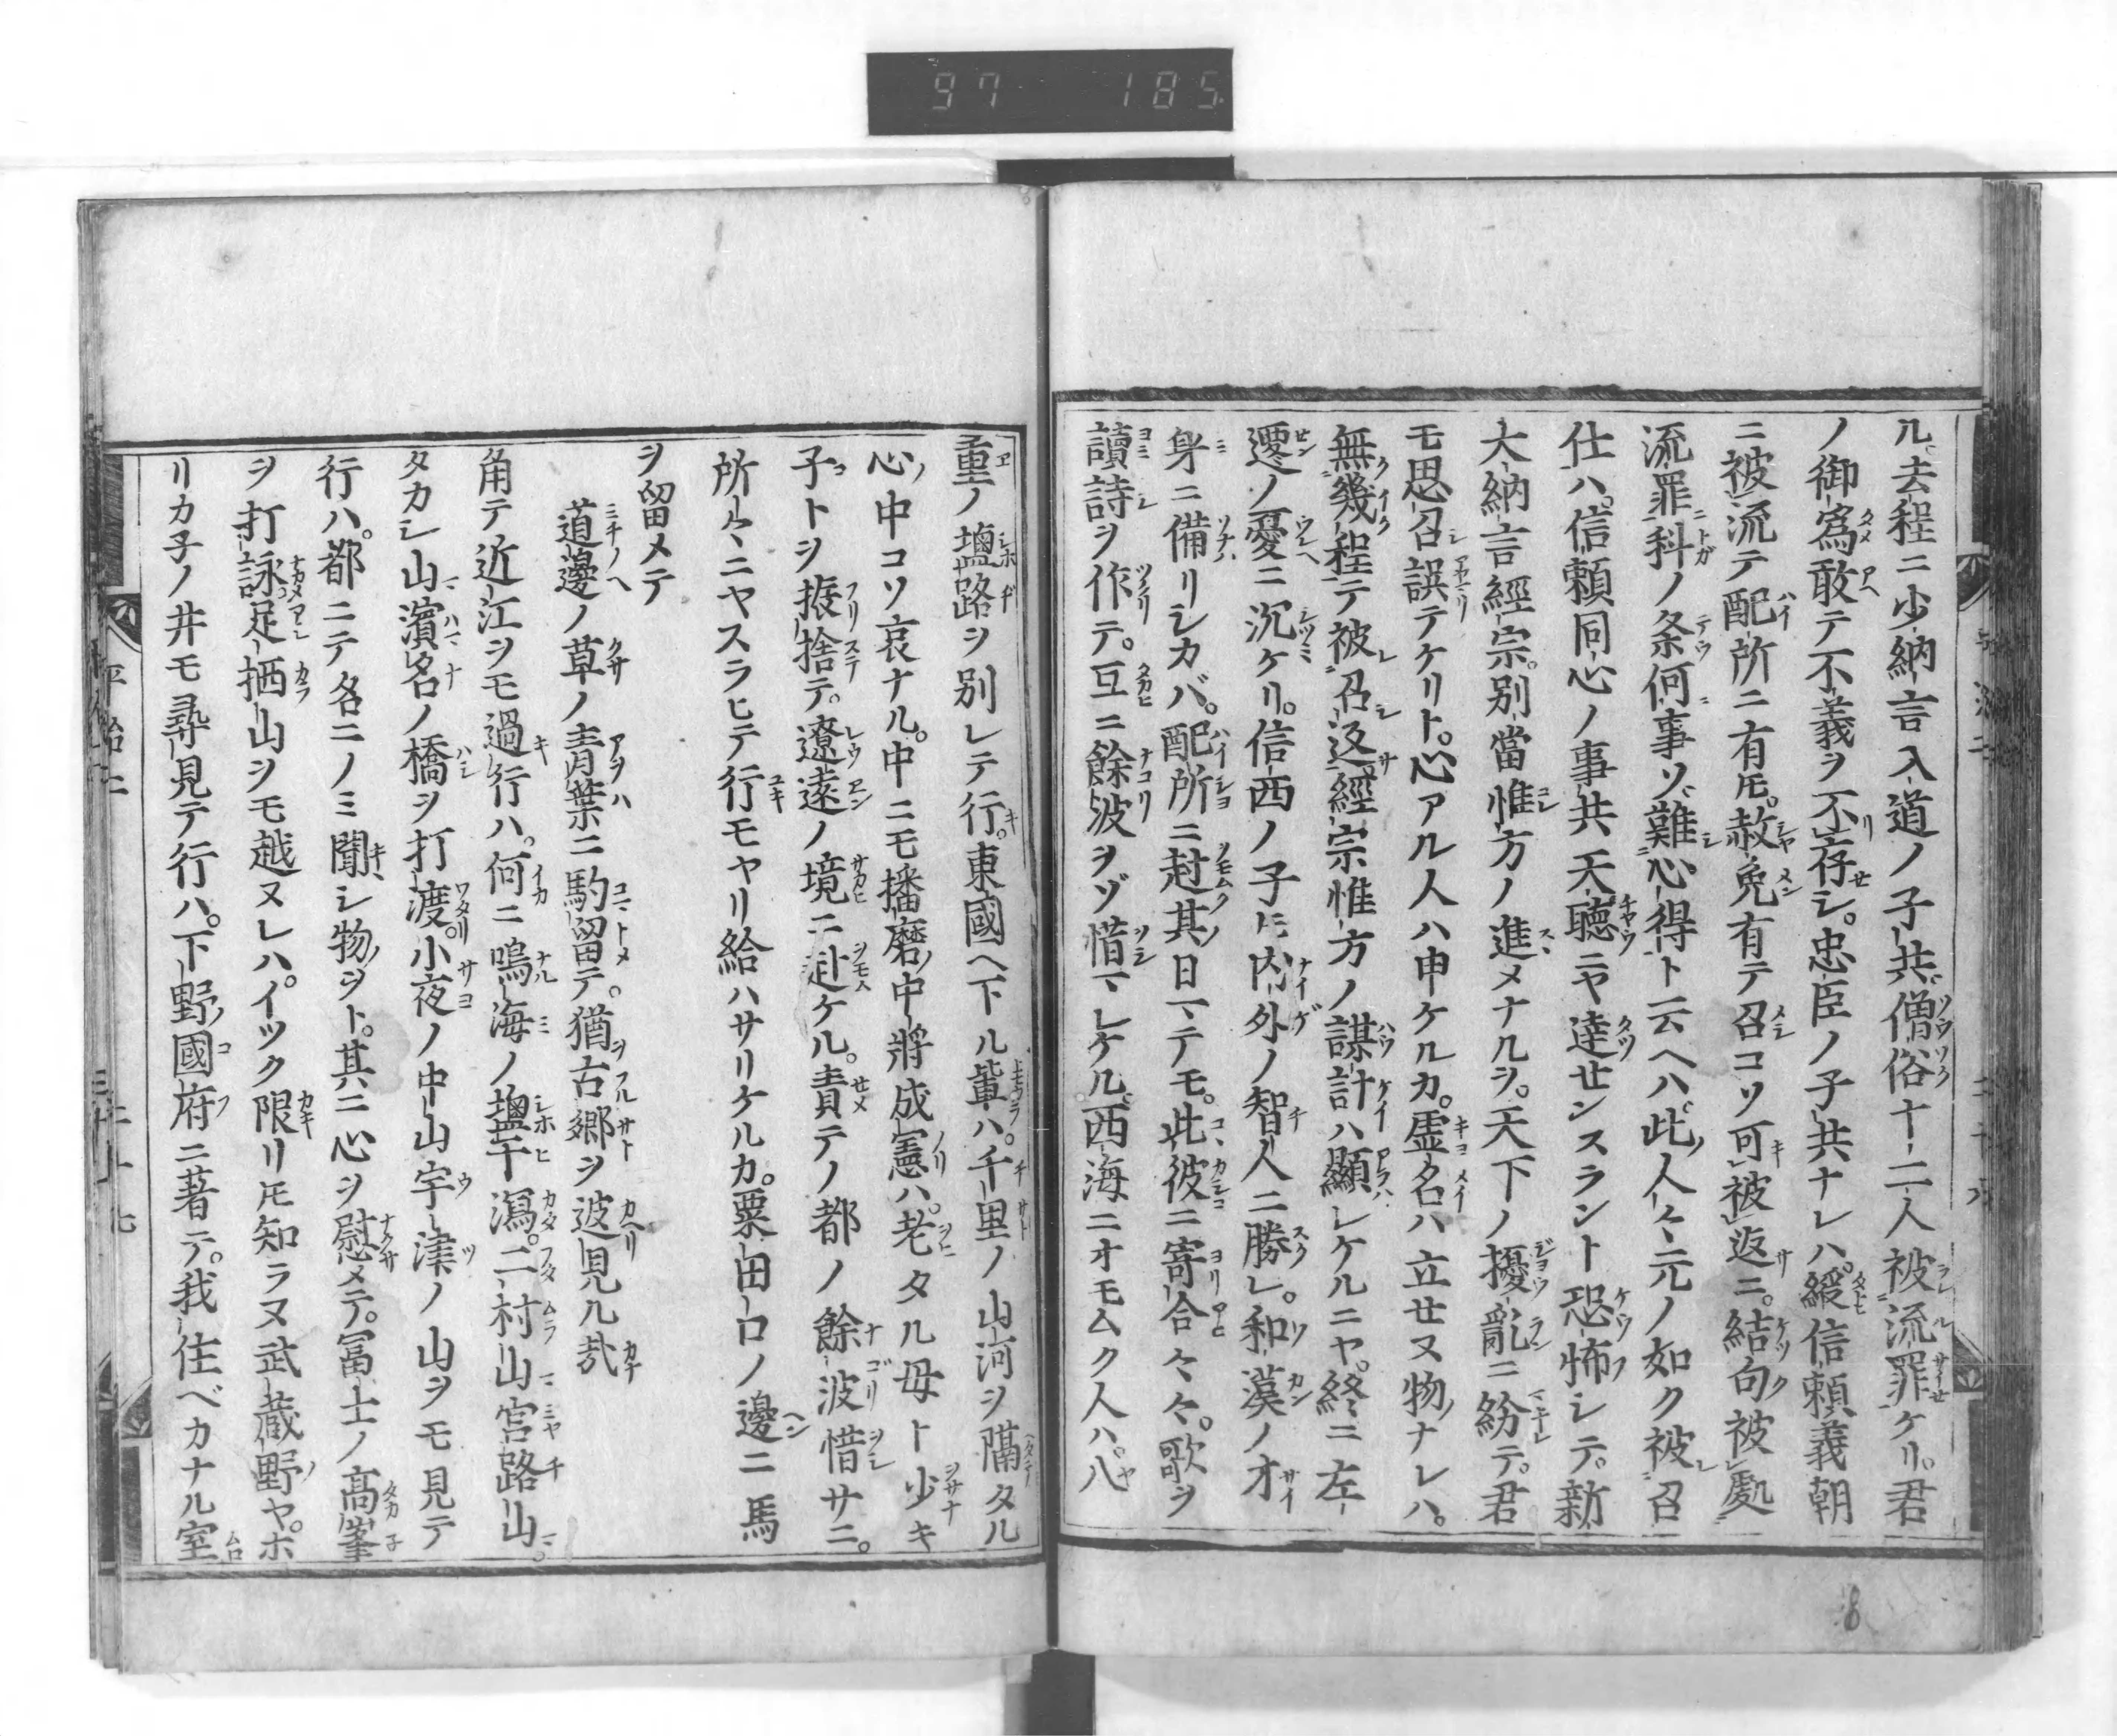 97 185
ル去程ニ少納言入道ノ子共僧俗十二人被流罪ケリ。君
ノ御爲敢テ不義ヲ不存シ。忠臣ノ子共ナレハ。縱信頼義朝
ニ被流テ配所ニ有ドモ。赦免有テ召コソ可被返ニ。結句被處
流罪科ノ条何事ソ。難心得ト云ヘハ。此人々元ノ如ク被召
仕ハ。信頼同心ノ事共天聴ニヤ達センスラント恐怖シテ。新
大納言經宗。別當惟方ノ進メナルヲ。天下ノ擾亂ニ紛テ。君
モ思召誤テケリト。心アル人ハ申ケルカ。虚名ハ立セヌ物ナレハ。
無幾程テ被召返經宗惟方ノ謀計ハ顯レケルニヤ。終ニ左
遷ノ憂ニ沉ケリ。信西ノ子ドモ内外ノ智人ニ勝レ。和漢ノオ
身ニ備リシカバ。配所ニ赴其日マテモ。此彼ニ寄合々々。歌ヲ
讀詩ヲ作テ。互ニ餘波ヲゾ惜マレケル。西海ニオモムク人ハ。八
重ノ塩路ヲ別レテ行。東國ヘ下ル輩ハ。千里ノ山河ヲ隔タル
心中コソ哀ナル。中ニモ播磨中將成憲ハ。老タル母ト少キ
子トヲ振捨テ。遼遠ノ境ニ赴ケル。責テノ都ノ餘波惜サニ。
所々ニヤスラヒテ行モヤリ給ハサリケルカ。粟田口ノ邊ニ馬
ヲ留メテ
道邊ノ草ノ青葉ニ駒留テ。猶古郷ヲ返見ル哉
角テ近江ヲモ過行ハ。何ニ鳴海ノ塩干瀉。二村山宮路山。
タカシ山濱名ノ橋ヲ打渡。小夜ノ中山宇津ノ山ヲモ見テ
行ハ。都ニテ名ニノミ聞シ物ヲト。其ニ心ヲ慰メテ。冨士ノ高峯
ヲ打詠足柄山ヲモ越ヌレハ。イツク限リドモ知ラヌ武蔵野ヤ。ホ
リカネノ井モ尋見テ行ハ。下野國府ニ著テ。我住ベカナル室
平治二